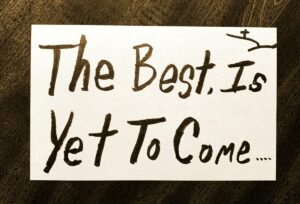 The Best. Is
Yet To Come....